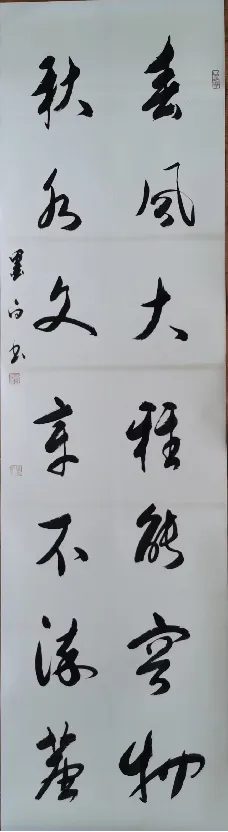 春風大雅能容物
秋水文章不染塵
墨白书